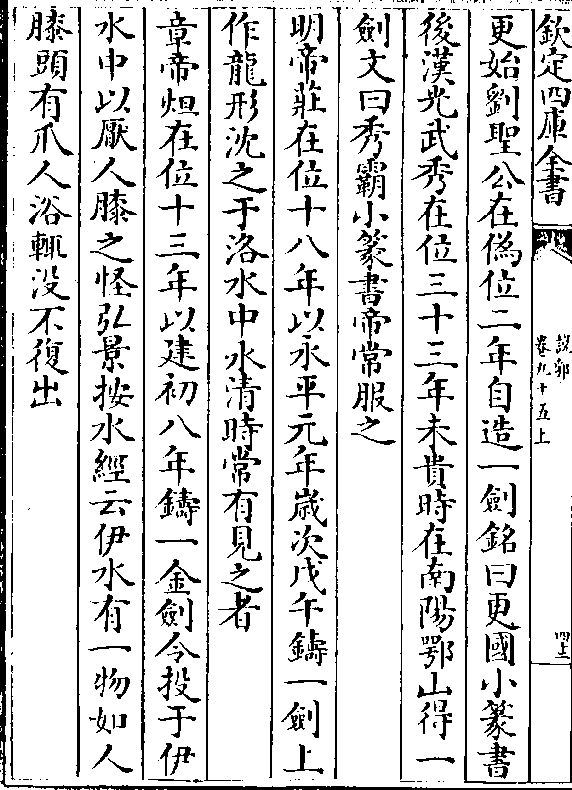 欽定四庫全書
說郛
卷九十五上
更始劉聖公在偽位二年自造一劍銘曰更國小篆書
後漢光武秀在位三十三年未貴時在南陽鄂山得一
劍文曰秀霸小篆書帝常服之
明帝莊在位十八年以永平元年嵗次戊午鑄一劍上
作龍形沈之于洛水中水清時常有見之者
章帝炟在位十三年以建初八年鑄一金劍令投于伊
水中以厭人膝之怪弘景按水經云伊水有一物如人
膝頭有爪人浴輒没不復出